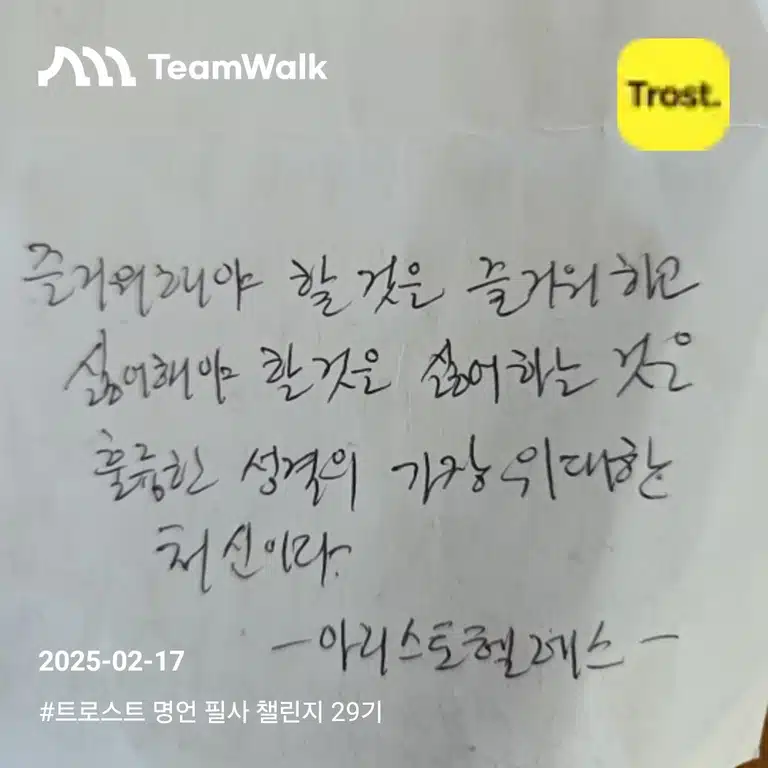 TeamWalk
Trost.
즐거워해야 할 것은 즐거워하고
싫어해야 할 것은 싫어하는 것은
훌륭한 성격의 가장 위대한
처신이다.
-아리스토텔레스-
2025-02-17
#트로스트 명언 필사 챌린지 29기